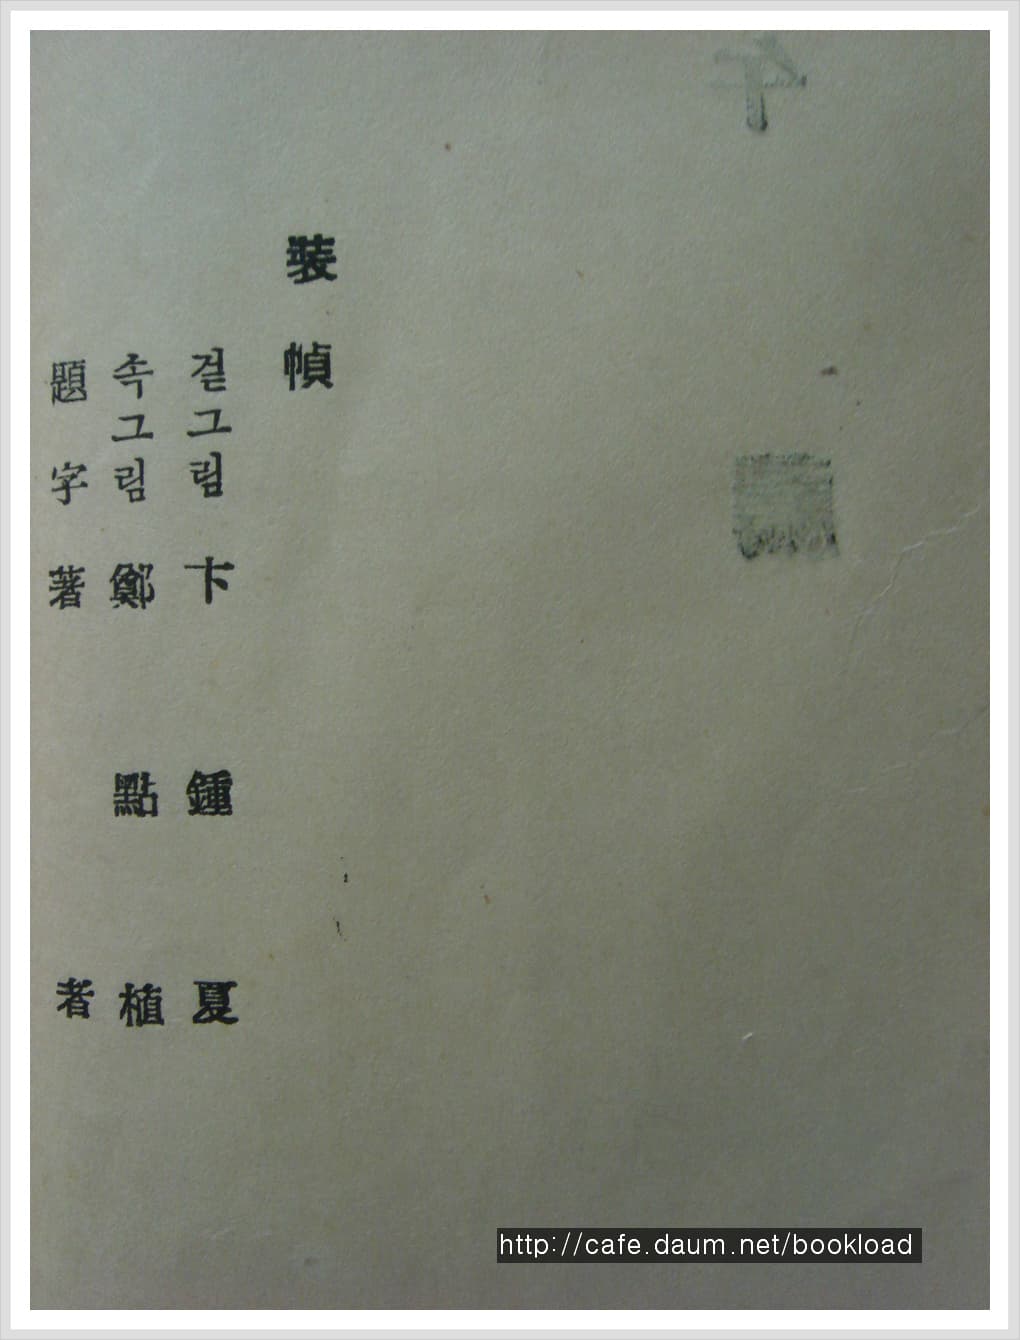 裝幀
겉그림 卞鍾夏
속그림 鄭點植
題字 著者
http://cafe.daum.net/bookload